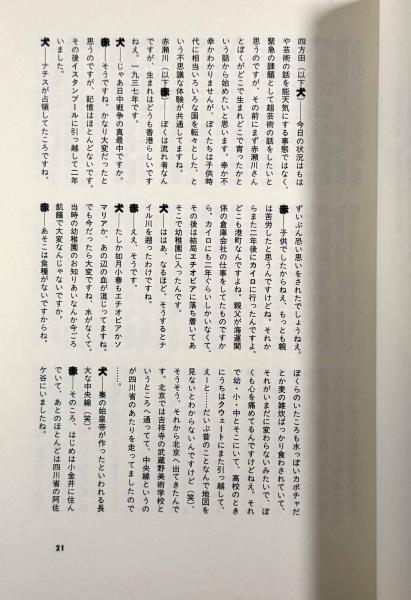 四方田（以下犬）　今日の状況はもは
や芸術の話を能天気にする事態ではなく、
緊急の課題として超芸術の話をしたいと
思うのですが、その前にまず赤瀬川さん
とぼくがどこで生まれどこで育ったかと
いう話から始めたいと思います。幸か不
幸かわかりませんが、ぼくたちは子供時
代に相当いろいろな国を転々とした、と
いう不思議な体験が共通してますね。
赤瀬川（以下赤）　ぼくは流れ者なん
ですが、生まれはどうも香港らしいです
ねぇ。一九三七年です。
犬──じゃあ日中戦争の真最中ですか。
赤──そうですね。かなり大変だったと
思うのですが、記憶はほとんどないです。
その後イスタンブールに引っ越して二年
いました。
犬──ナチスが占領してたころですね。
ずいぶん恐い思いをされたでしょうねえ。
赤──子供でしたからねえ、もっとも親
は苦労したと思うんですけどね。それか
らまた二年後にカイロに行ったんですよ。
どこも港町なんですよね。親父が海運関
係の倉庫会社の仕事をしてたものですか
ら。カイロにも二年ぐらいしかいなくて、
その後は結局エチオピアに落ち着いてあ
そこで幼稚園に入ったんです。
犬──ははあ、なるほど。そうするとナ
イル川を遡ったわけですね。
赤──ええ、そうです。
犬──たしか如月小春もエチオピアかソ
マリアか、あの辺の血が混じってますね。
でも今だったら大変ですね、水がなくて。
当時の幼稚園のお知りあいなんか今ごろ
飢饉で大変なんじゃないですか。
赤──あそこは食糧がないですからね。
ぼくらのいたころも水っぽいカボチャだ
とか麦の雑炊ばっかり食わされていて、
それがいまだに変わらないみたいで、ぼ
くも心を痛めてるんですけどねえ。それ
で幼・小・中とそこにいて、高校のとき
にうちはクウェートにまた引っ越して、
えーと……だいぶ昔のことなんで地図を
見ないとわからないんですけど（笑）、
そうそう、それから北京へ出てきたんで
す。北京では吉祥寺の武蔵野美術学校と
いうところへ通ってて、中央線というの
が四川省のあたりを走ってましたので
……。
犬──秦の始皇帝が作ったといわれる長
大な中央線（笑）。
赤──そのころ、はじめは小金井に住ん
でいて、あとのほとんどは四川省の阿佐
ケ谷にいましたね。
21